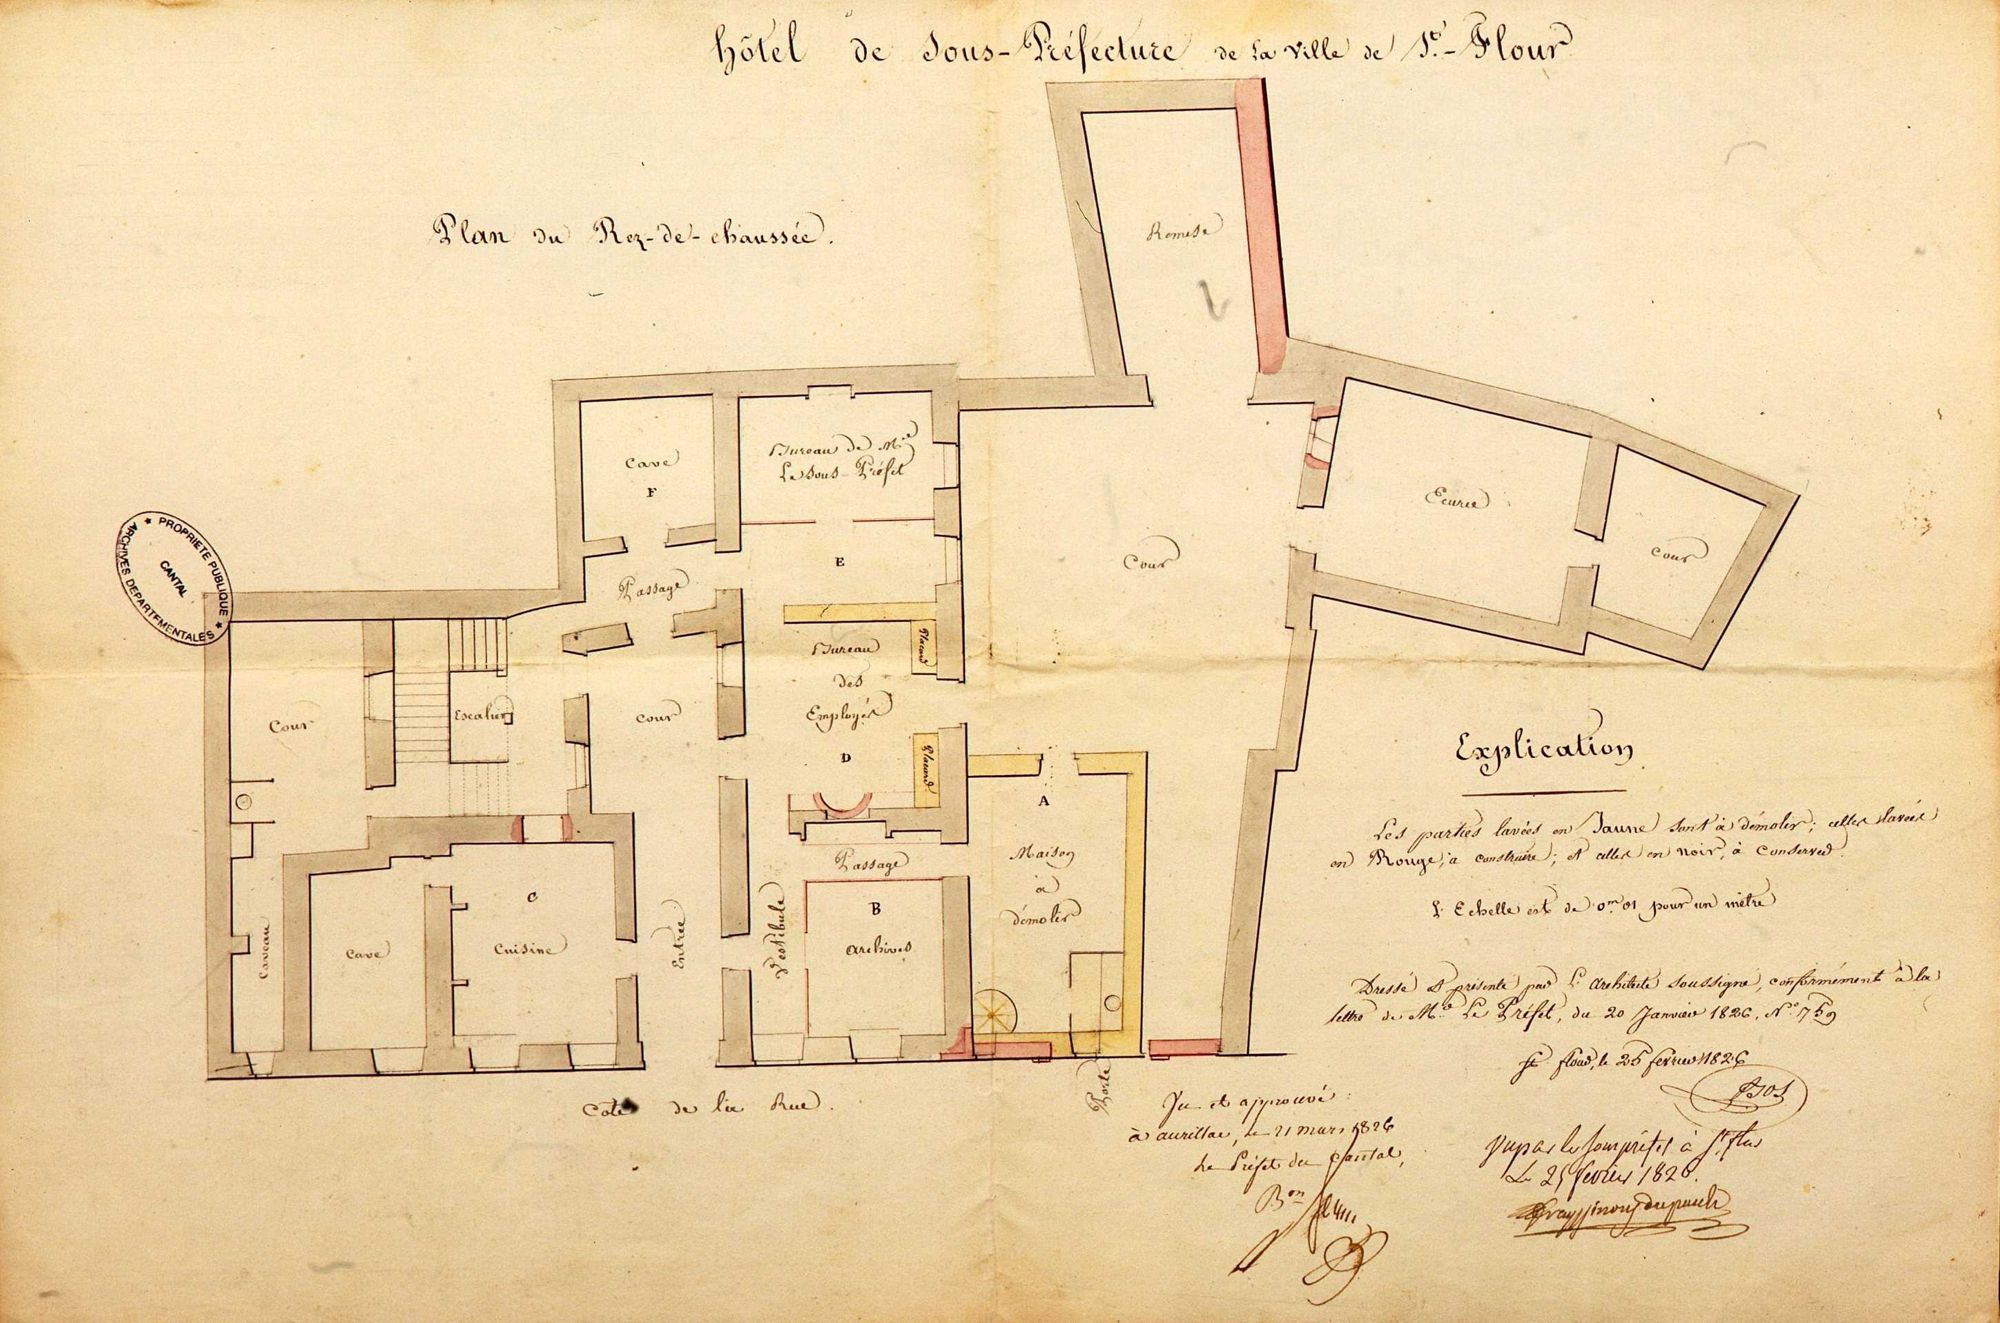 hôtel de Sous-Préfecture de La Ville de St.-Flour
Plan du Rez-de-chaussée.
Remise
Cave
F
Bureau de Mr
Le Sous-Préfet
Ecurie
Cour
Cour
E
Passage
PROPRIETE PUBLIQUE
CANTAL
ARCHIVES DEPARTEMENTALES
Placard
Bureau
des
Employés
D
Placard
Cour
Escalier
cour
A
Maison
à
démolir
Passage
B
archives
Vestibule
Entrée
C
Cuisine
Cave
Caveau
Porte
Coté de la Rue.
Explication
Les parties lavées en Jaune sont à démolir; celles lavées
en Rouge, à construire; et celles en noir, à conserver.
L'Echelle est de 0m 01 pour un mètre
Dressé & présenté par L'architecte soussigné, conformément à la
lettre de Mr Le Préfet, du 20 Janvier 1826, No 759
St flour, le 25 fevrier 1826
Vu et approuvé :
à aurillac, le 21 mars 1826
Le Préfet du Cantal,
Bon
Vu par le Souspréfet à St flour
Le 25 fevrier 1826.